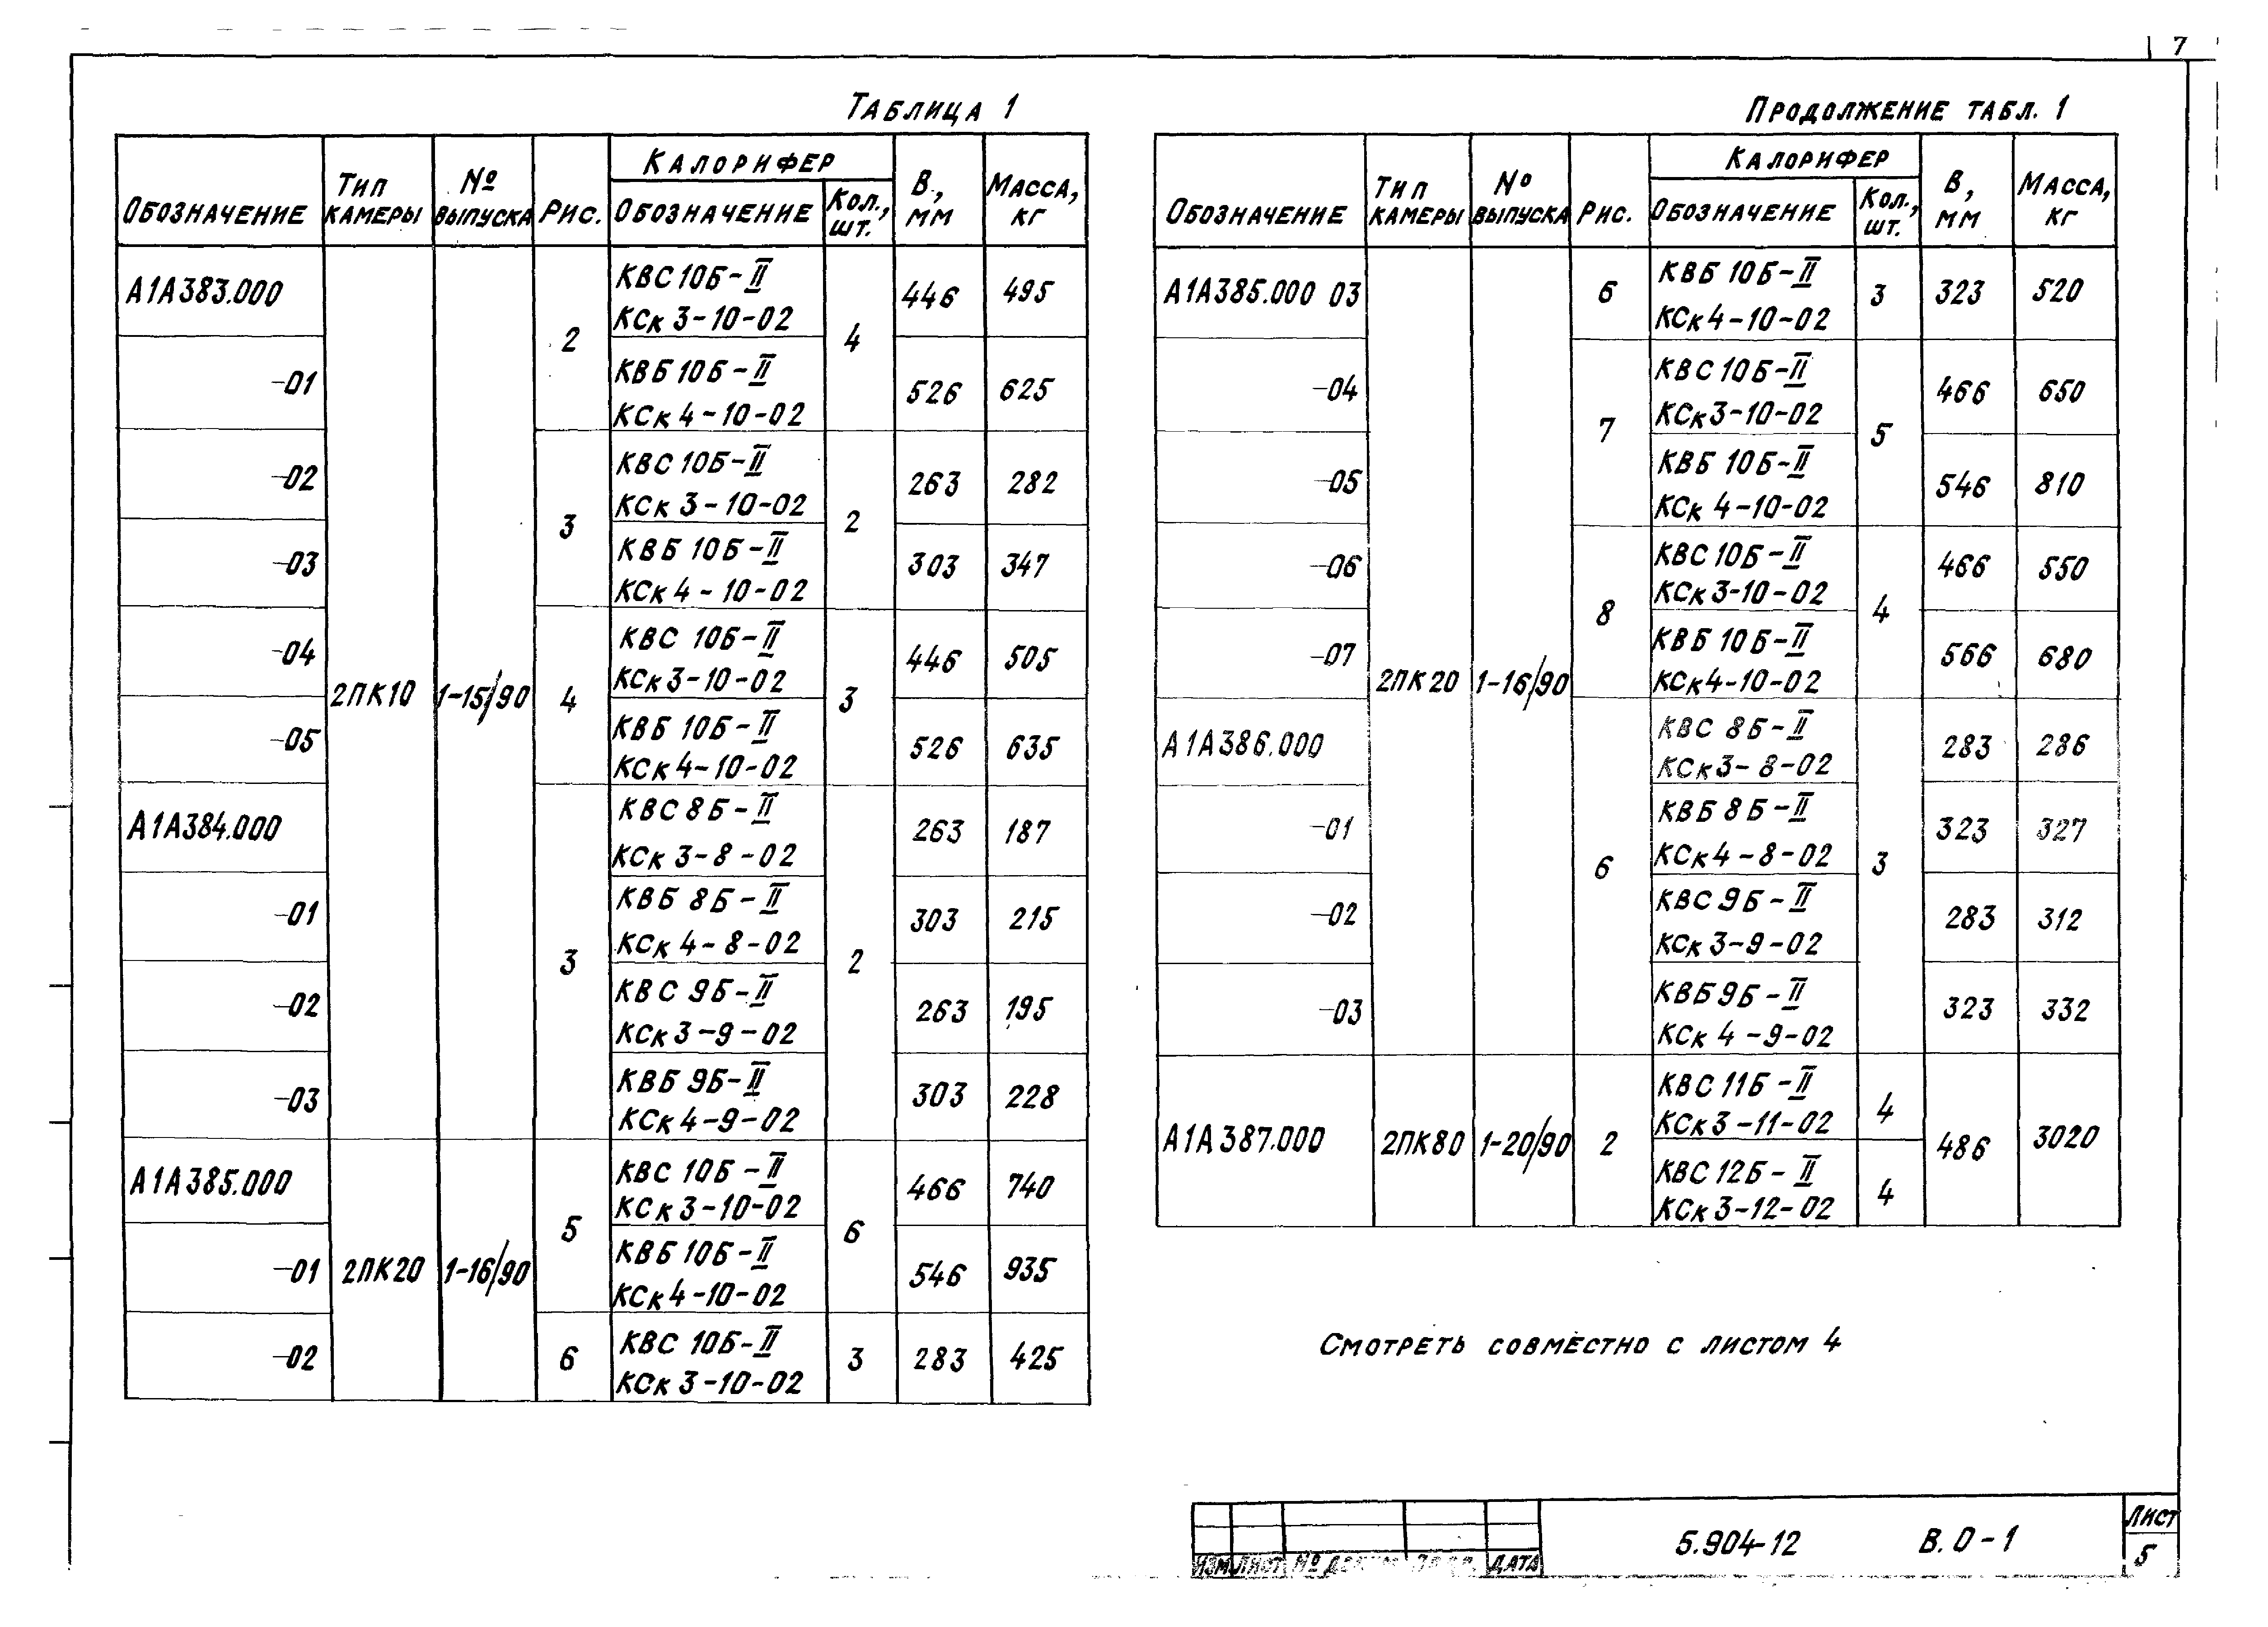 7
Таблица 1
Обозначение Тип камеры № выпуска Рис. Калорифер В, мм Масса, кг
Обозначение Кол., шт.
А1А383.000 2ПК10 1-15/90 2 КВС 10Б-II 4 446 495
КСк 3-10-02
-01 КВБ 10Б-II 526 625
КСк 4-10-02
-02 3 КВС 10Б-II 2 263 282
КСк 3-10-02
-03 КВБ 10Б-II 303 347
КСк 4-10-02
-04 4 КВС 10Б-II 3 446 505
КСк 3-10-02
-05 КВБ 10Б-II 526 635
КСк 4-10-02
А1А384.000 3 КВС 8Б-II 2 263 187
КСк 3-8-02
-01 КВБ 8Б-II 303 215
КСк 4-8-02
-02 КВС 9Б-II 263 195
КСк 3-9-02
-03 КВБ 9Б-II 303 228
КСк 4-9-02
А1А385.000 2ПК20 1-16/90 5 КВС 10Б-II 6 466 740
КСк 3-10-02
-01 КВБ 10Б-II 546 935
КСк 4-10-02
-02 6 КВС 10Б-II 3 283 425
КСк 3-10-02
Продолжение табл. 1
Обозначение Тип камеры № выпуска Рис. Калорифер В, мм Масса, кг
Обозначение Кол., шт.
А1А385.000 03 2ПК20 1-16/90 6 КВБ 10Б-II 3 323 520
КСк 4-10-02
-04 7 КВС 10Б-II 5 466 650
КСк 3-10-02
-05 КВБ 10Б-II 546 810
КСк 4-10-02
-06 8 КВС 10Б-II 4 466 550
КСк 3-10-02
-07 КВБ 10Б-II 566 680
КСк 4-10-02
А1А386.000 6 КВС 8Б-II 3 283 286
КСк 3-8-02
-01 КВБ 8Б-II 323 327
КСк 4-8-02
-02 КВС 9Б-II 283 312
КСк 3-9-02
-03 КВБ 9Б-II 323 332
КСк 4-9-02
А1А387.000 2ПК80 1-20/90 2 КВС 11Б-II 4 486 3020
КСк 3-11-02
КВС 12Б-II 4
КСк 3-12-02
Смотреть совместно с листом 4
Изм Лист № Дата
5.904-12 В.0-1
Лист
5